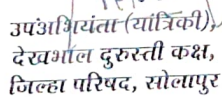 उपंअभियंता (यांत्रिकी),
देखभाल दुरुस्ती कक्ष,
जिल्हा परिषद, सोलापुर